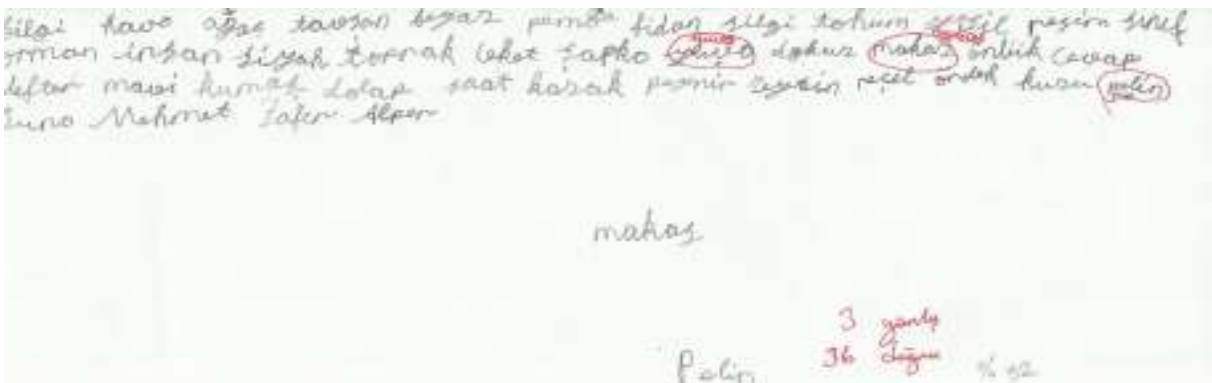 silgi hava ağaç tavşan beyaz pembe fidan silgi tohum yeşil resim sınıf
orman insan siyah toprak ceket şapka dokuz makas önlük cevap
defter mavi kumaş dolap saat kazak peynir zeytin reçel ördek kuzu pelin
Mehmet Zafer Alper
makas
3 yanlış
36 doğru
Pelin % 92